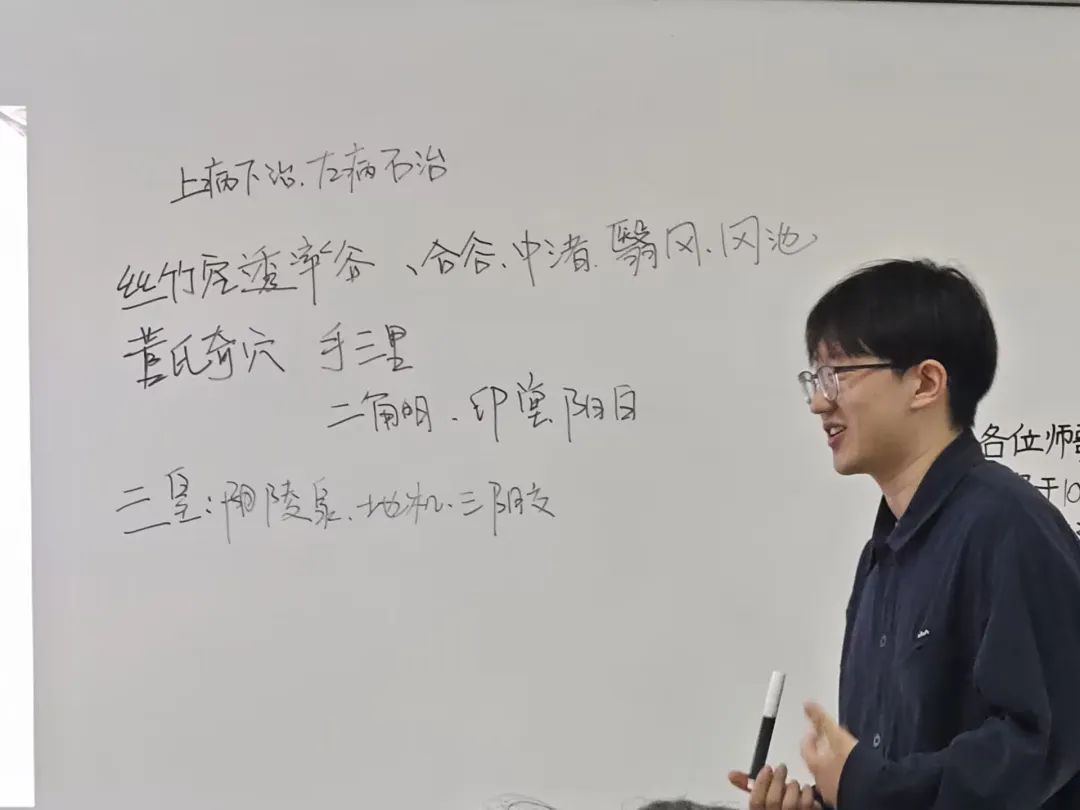 上病下治、左病右治
丝竹空透率谷、合谷、中渚、翳风、风池
董氏奇穴 手三里
二角明、印堂、阳白
三皇：阴陵泉、地机、三阴交
各位师
于10